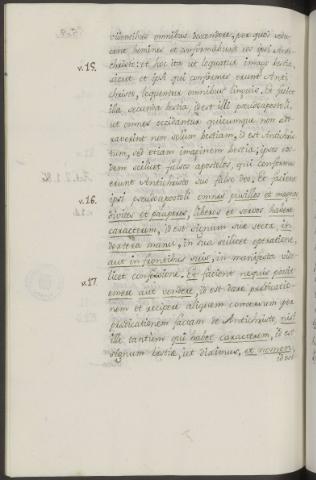 omnibus omnibus docendere, per quos
cent homines et confirmabunt eos ipsi Anti-
christo: et hoc ita ut loquatur imago bestiæ,
v.15.
sicut et ipsi qui conformes erunt Anti
christo, loquentur omnibus linguis. Et faciet
illa secunda bestia, id est illi pseudoapostoli,
ut omnes occidantur quicumque non ado
raverint non solum bestiam, id est Antichris
tum, sed etiam imaginem bestiæ; ipsos eos
dem scilicet falsos apostolos, qui conformes
erunt Antichristo suo falso deo. Et facient
v.16.
ipsi pseudoapostoli omnes pusillos et magnos,
divites et pauperes, liberos et servos habere
caracterem, id est signum suæ sectæ, in
dextera manu, in sua scilicet operatione,
aut in frontibus suis, in manifesta vide
licet confessione. Et facient nequis possit
v.17.
emere aut vendere, id est dare predicatio-
nem et recipere aliquem conversum per
prædicationem factam de Antichristo, nisi
ille tantum qui habet caracterem, id est
signum bestiæ, ut diximus, et nomen,
id est